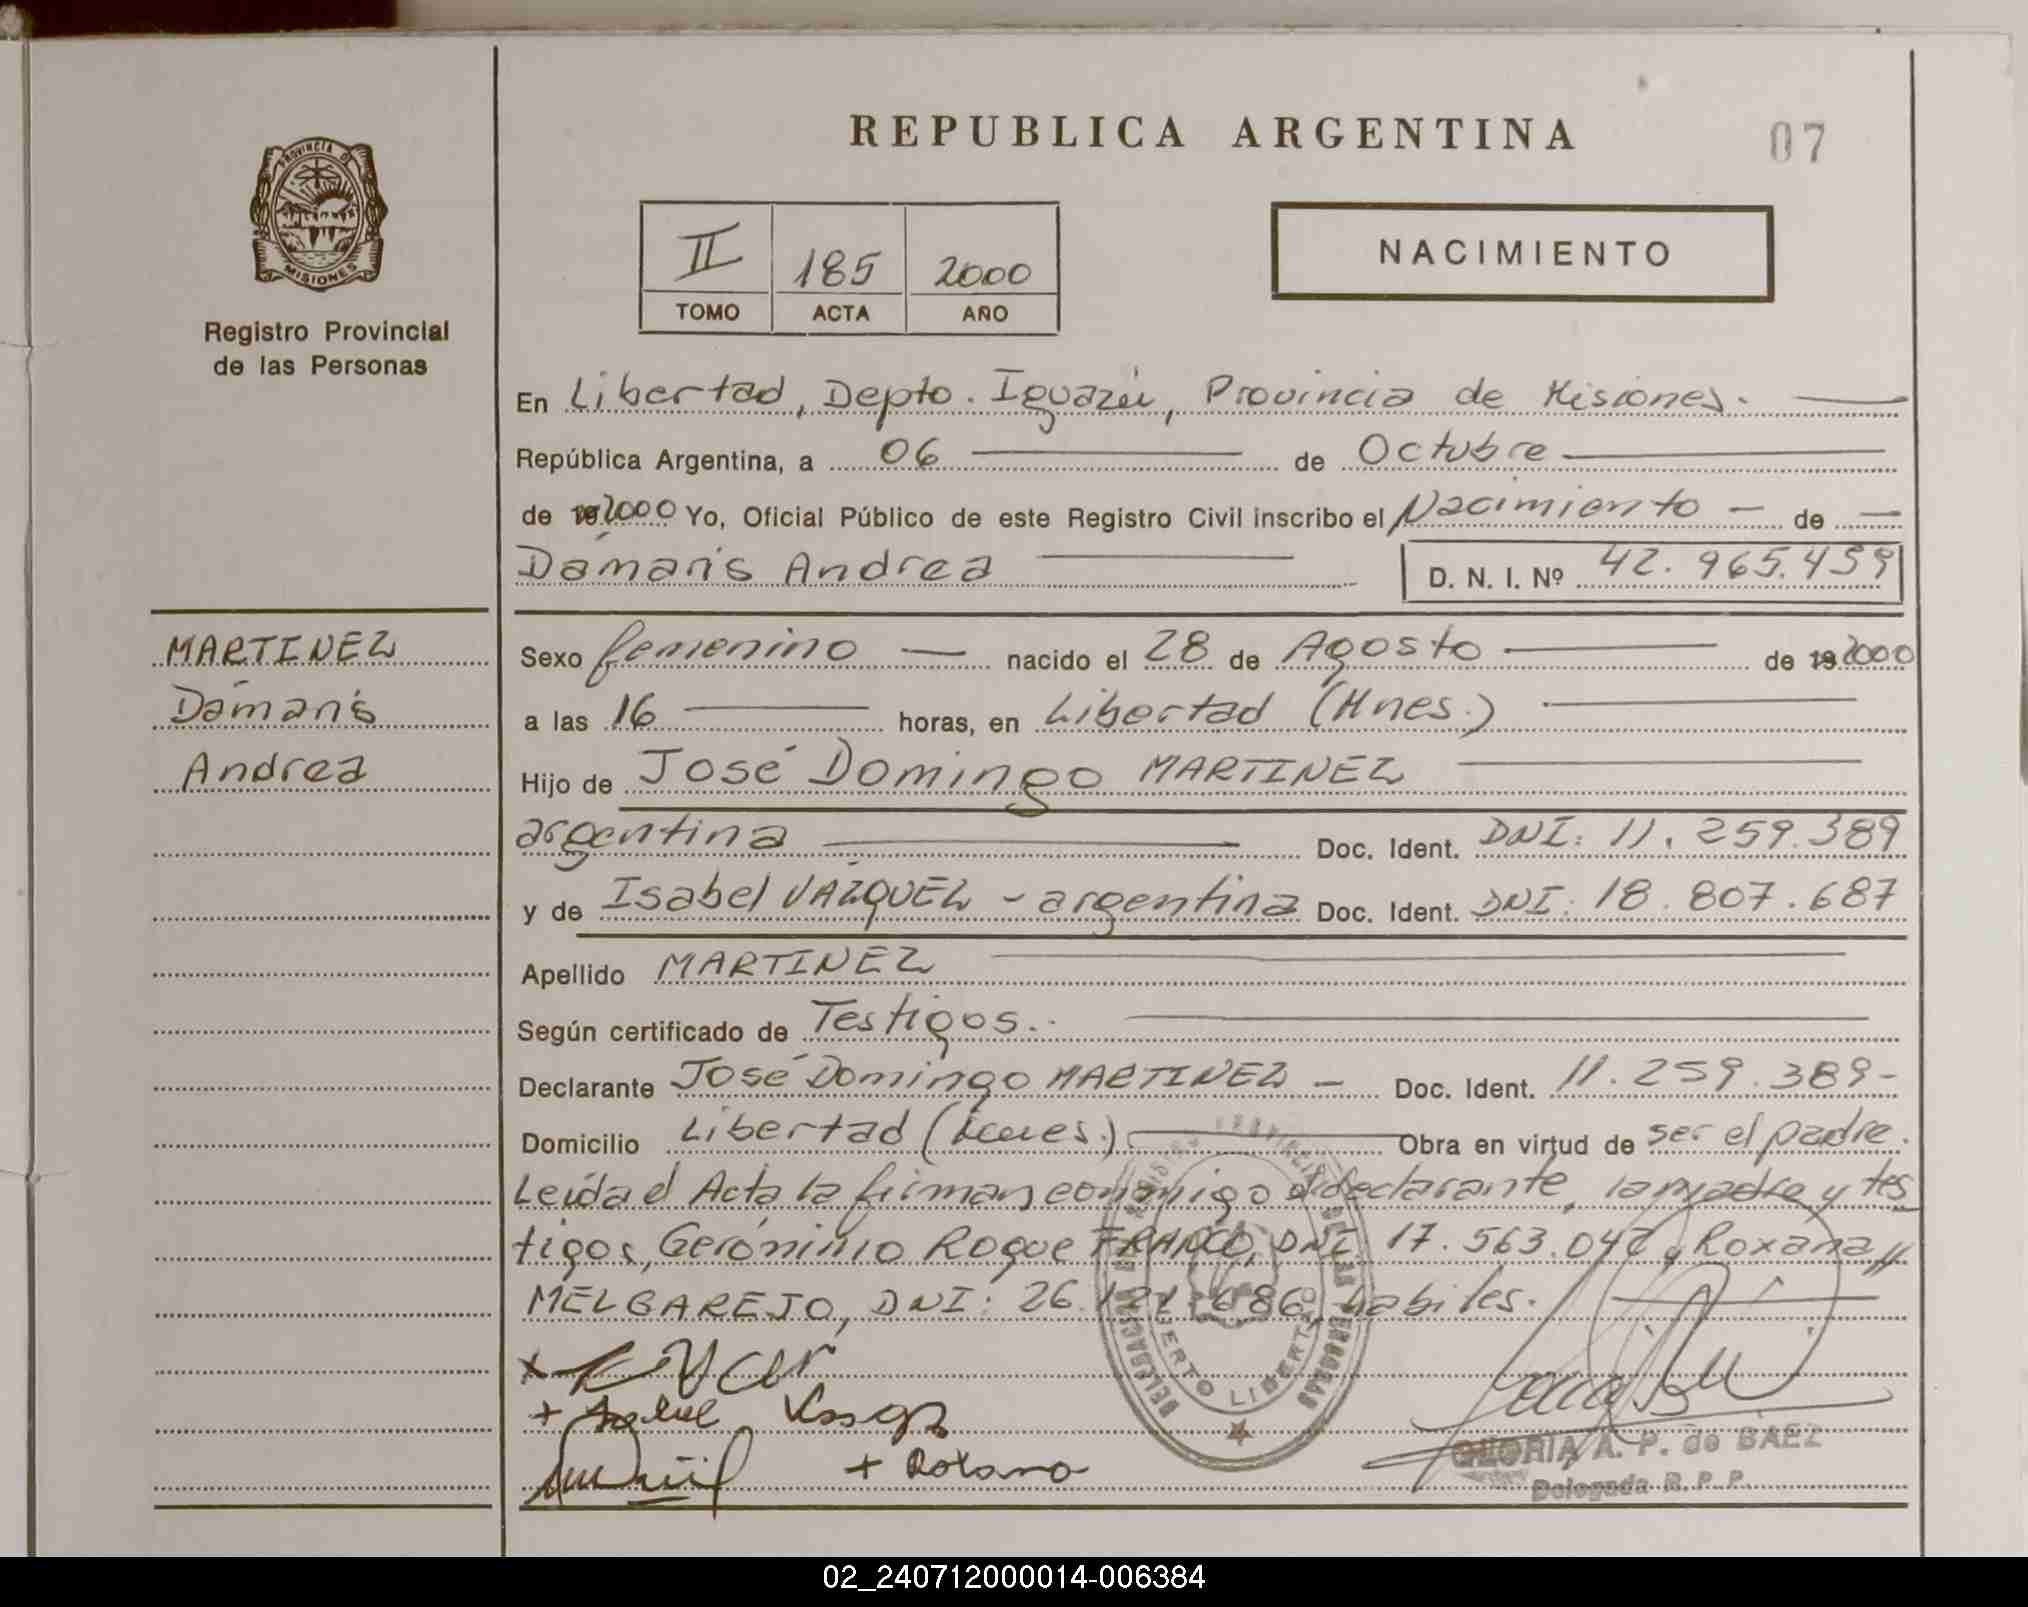 REPUBLICA ARGENTINA
07
PROVINCIA DE
MISIONES
Registro Provincial
de las Personas
II 185 2000
TOMO ACTA AÑO
NACIMIENTO
En Libertad, Depto. Iguazú, Provincia de Misiones.
República Argentina, a 06 de Octubre
de 19 2000 Yo, Oficial Público de este Registro Civil inscribo el Nacimiento de
Dámaris Andrea D. N. I. Nº 42.965.459
MARTINEZ
Dámaris
Andrea
Sexo femenino nacido el 28 de Agosto de 19 2000
a las 16 horas, en Libertad (Mnes.)
Hijo de José Domingo MARTINEZ
argentina Doc. Ident. DNI: 11.259.389
y de Isabel VAZQUEZ - argentina Doc. Ident. DNI: 18.807.687
Apellido MARTINEZ
Según certificado de Testigos.
Declarante José Domingo MARTINEZ - Doc. Ident. 11.259.389-
Domicilio Libertad Obra en virtud de ser el padre.
Leída el Acta la firman conmigo el declarante, la madre y tes
tigos, Gerónimo Roque FRANCO, DNI 17.563.04 y Roxana
MELGAREJO, DNI: 26.121.686, habiles.
PUERTO LIBERTAD
GLORIA A. P. de BAEZ
Delegada R. P. P.
02_240712000014-006384